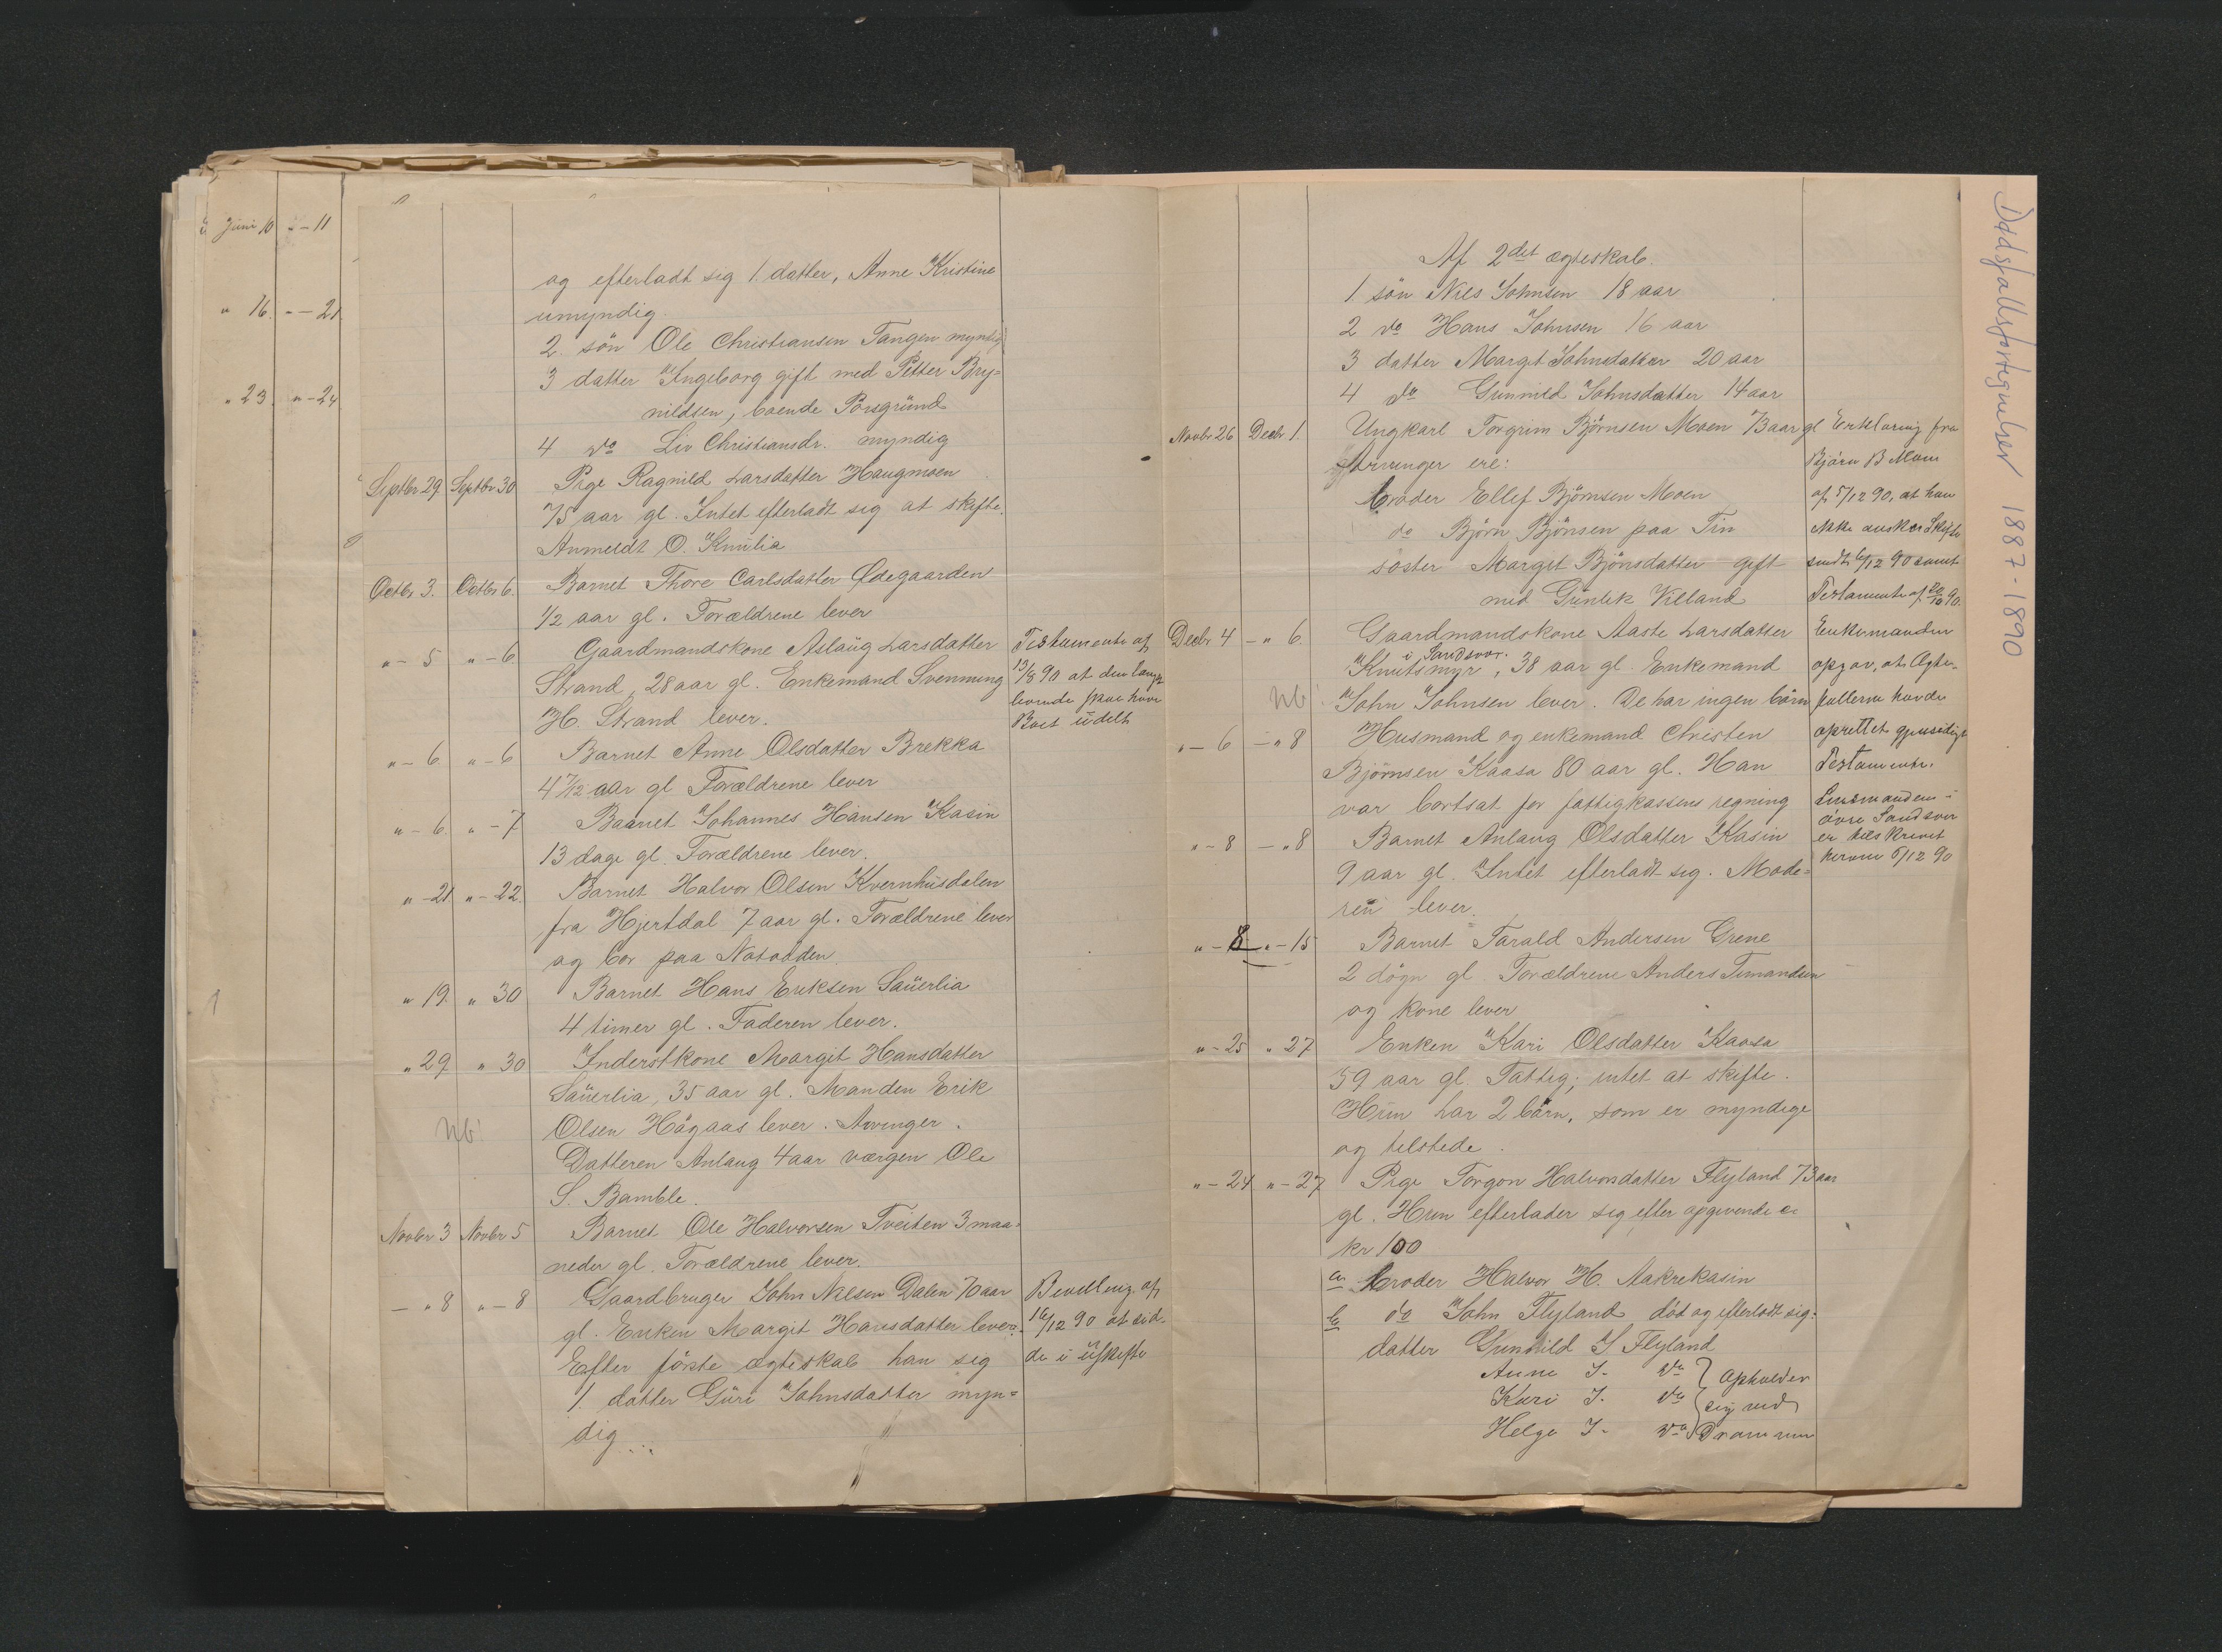 Juni 10 " - 11
" 16. - - 21
" 23. " - 24
og efterladt sig 1. datter, Anne Kristine
umyndig.
2. søn Ole Christiansen Tangen myndig
3 datter Ingeborg gift med Petter Bry=
nildsen, boende Porsgrund
4 do Liv Christiansdr. myndig
Septbr 29 Septbr 30 Pige Ragnild Larsdatter Haugmoen
75 aar gl. Intet efterladt sig at skifte.
Anmeldt O. Kmilia
Octbr 3. Octbr 6. Barnet Thore Carlsdatter Ødegaarden
1/2 aar gl. Forældrene lever
" - 5 " - 6 Gaardmandskone Aslaug Larsdatter
Strand, 28 aar gl. Enkemand Svenning
H. Strand lever.
Testamente af
13/8 90 at den længst
levende skal have
Boet udelt
" - 6 " - 6 Barnet Anne Olsdatter Brekka
4 7/12 aar gl Forældrene lever
" - 6. " - 7 Baanet Johannes Hansen Kasin
13 dage gl. Forældrene lever.
" - 21 " - 22. Barnet Halvor Olsen Kvernhusdalen
fra Hjertdal 7 aar gl. Forældrene lever
og bor paa Notodden.
" 19. " 30 Barnet Hans Eriksen Sauerlia
4 timer gl. Faderen lever.
" 29 " 30 Inderstkone Margit Hansdatter
Sauerlia, 35 aar gl. Manden Erik
Nb! Olsen Høgaas lever. Arvinger.
Datteren Anlaug 4 aar værgen Ole
S. Bamble.
Novbr 3 Novbr 5 Barnet Ole Halvorsen Tveiten 3 maa=
neder gl. Forældrene lever.
- " 8 " - 8 Gaardbruger John Nilsen Dalen 70 aar
gl. Enken Margit Hansdatter lever.
Efter første ægteskab han sig
1. datter Guri Johnsdatter myn=
dig
Bevilling af
16/12 90 at sid-
de i uskifte
Af 2det ægteskab.
1 søn Nils Johnsen 18 aar
2 do Hans Johnsen 16 aar
3 datter Margit Johnsdatter 20 aar
4 do Gunnild Johnsdatter 14 aar
Novbr 26 Decbr 1. Ungkarl Torgrim Bjørnsen Moen 73 aar gl
Arvinger ere:
broder Ellef Bjørnsen Moen
do Bjørn Bjørnsen paa Tin
søster Margit Bjørnsdatter gift
med Gunlek Villand
Erklæring fra
Bjørn B Moen
af 5/12 90, at han
ikke ønsker Skifte
sendt 6/12 90 samt
Testamente af 20/10 90.
Decbr 4 - " 6 Gaardmandskone Aaste Larsdatter
i Sandsvær.
Knutsmyr, 38 aar gl. Enkemand
Nb! John Johnsen lever. De har ingen børn
Enkemanden
opgav, at Ægte-
fællerne havde
oprettet gjensidigt
Testamente.
Lensmanden i
øvre Sandsver
er tilskrevet
herom 6/12 90
" - 6 - " 8 Husmand og enkemand Christen
Bjørnsen Kaasa 80 aar gl. Han
var bortsat for fattigkassens regning
" - 8 - " 8 Barnet Anlaug Olsdatter Kasin
9 aar gl. Intet efterladt sig. Mode=
ren lever.
" - 8 " - 15 Barnet Tarald Andersen Grene
2 døgn gl Forældrene Anders Timandsen
og kone lever
" - 25 " 27 Enken Kari Olsdatter Kaasa
59 aar gl. Fattig; intet at skifte.
Hun har 2 børn, som er myndige
og tilstede.
" - 24 " - 27 Pige Torgon Halvorsdatter Flyland 73 aar
gl. Hun efterlader sig efter opgivende ca
kr 100
a broder Halvor H. Aakrekasin
b do John Flyland død og efterladt sig:
datter Gunhild J Flyland
Anne J. do } opholder
Kari J. do } sig ved
Helge J. do } Drammen
Dødsfallsfortegnelser 1887-1890